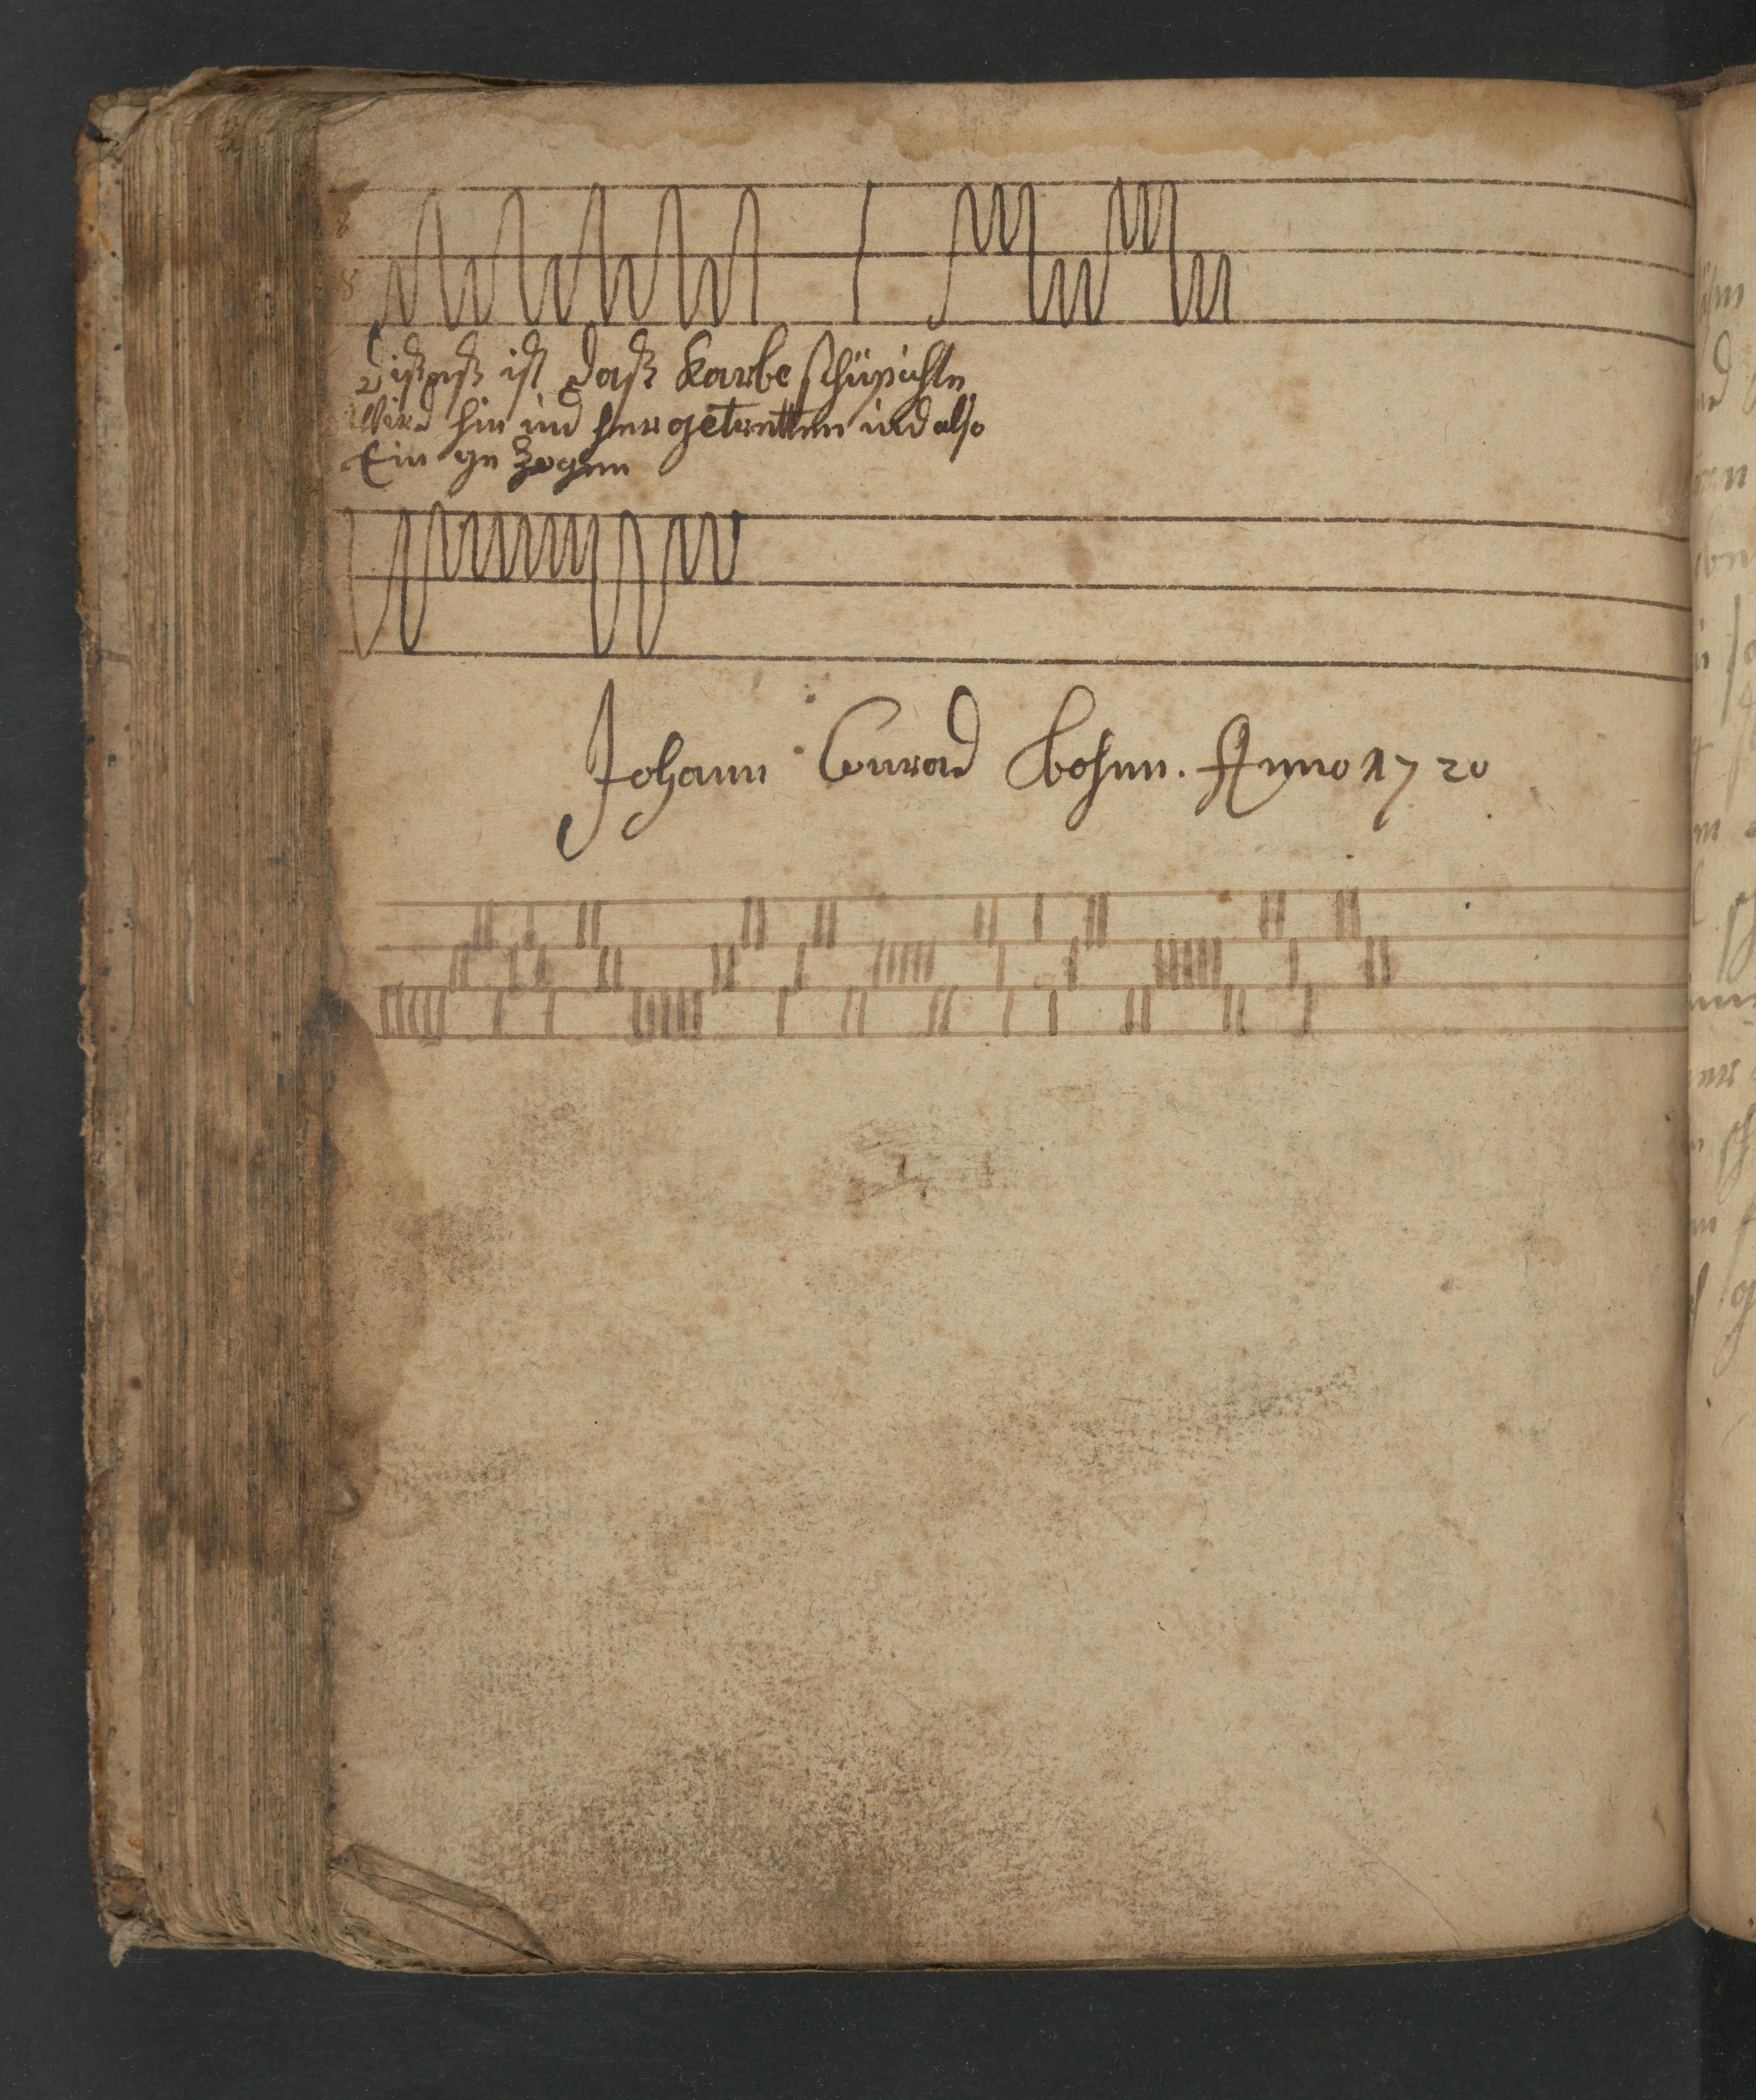 8
8
Dißeß ist daß Karbe
Wird hin und her getretten und also
Ein ge zogen
Johann Conrad Bohm. Anno 1720